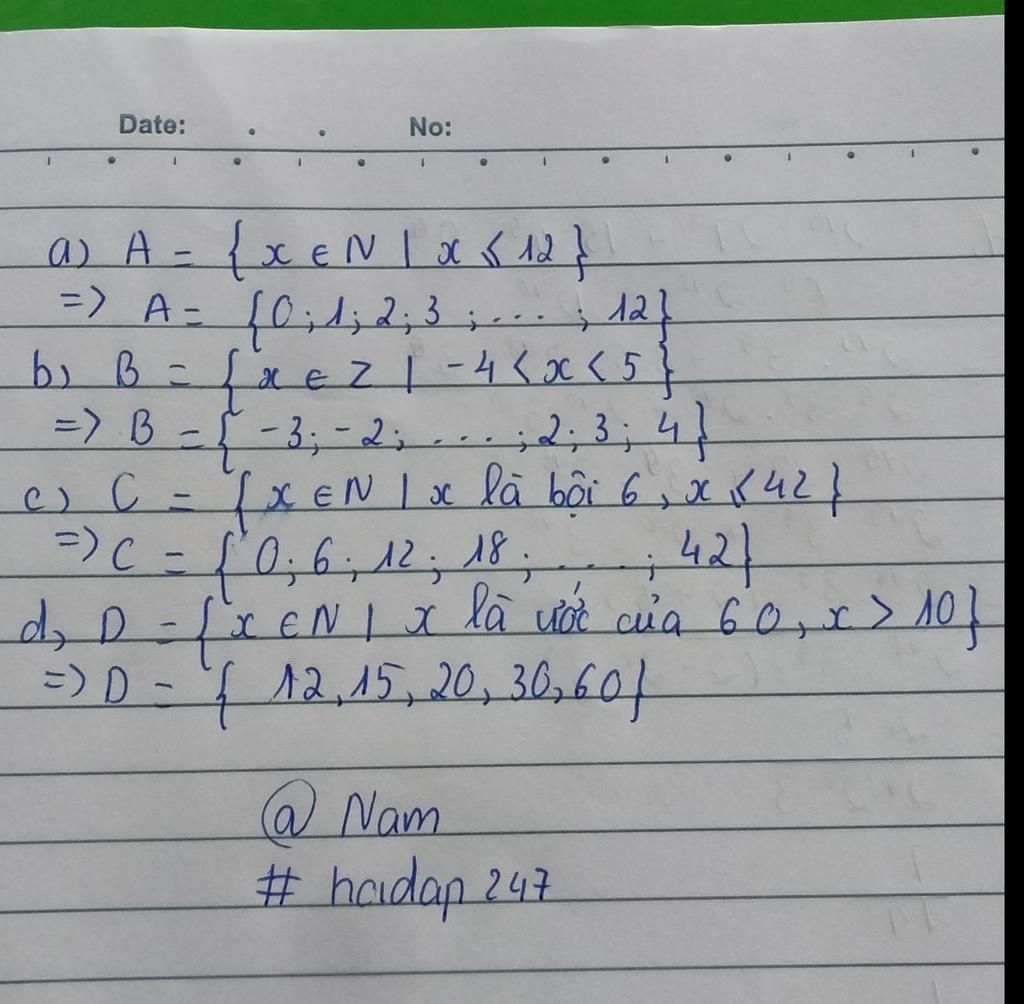 Date: . . No:
a) A = { x ∈ N | x ⩽ 12 }
=> A = {0 ; 1 ; 2 ; 3 ; .... ; 12}
b) B = { x ∈ Z | -4 < x < 5 }
=> B = { -3 ; -2 ; .... ; 2 ; 3 ; 4 }
c) C = { x ∈ N | x là bội 6 , x ⩽ 42 }
=> C = { 0 ; 6 ; 12 ; 18 ; .... ; 42}
d, D = { x ∈ N | x là ước của 60 , x > 10 }
=> D = { 12 , 15 , 20 , 30 , 60 }
@ Nam
# hoidap 247